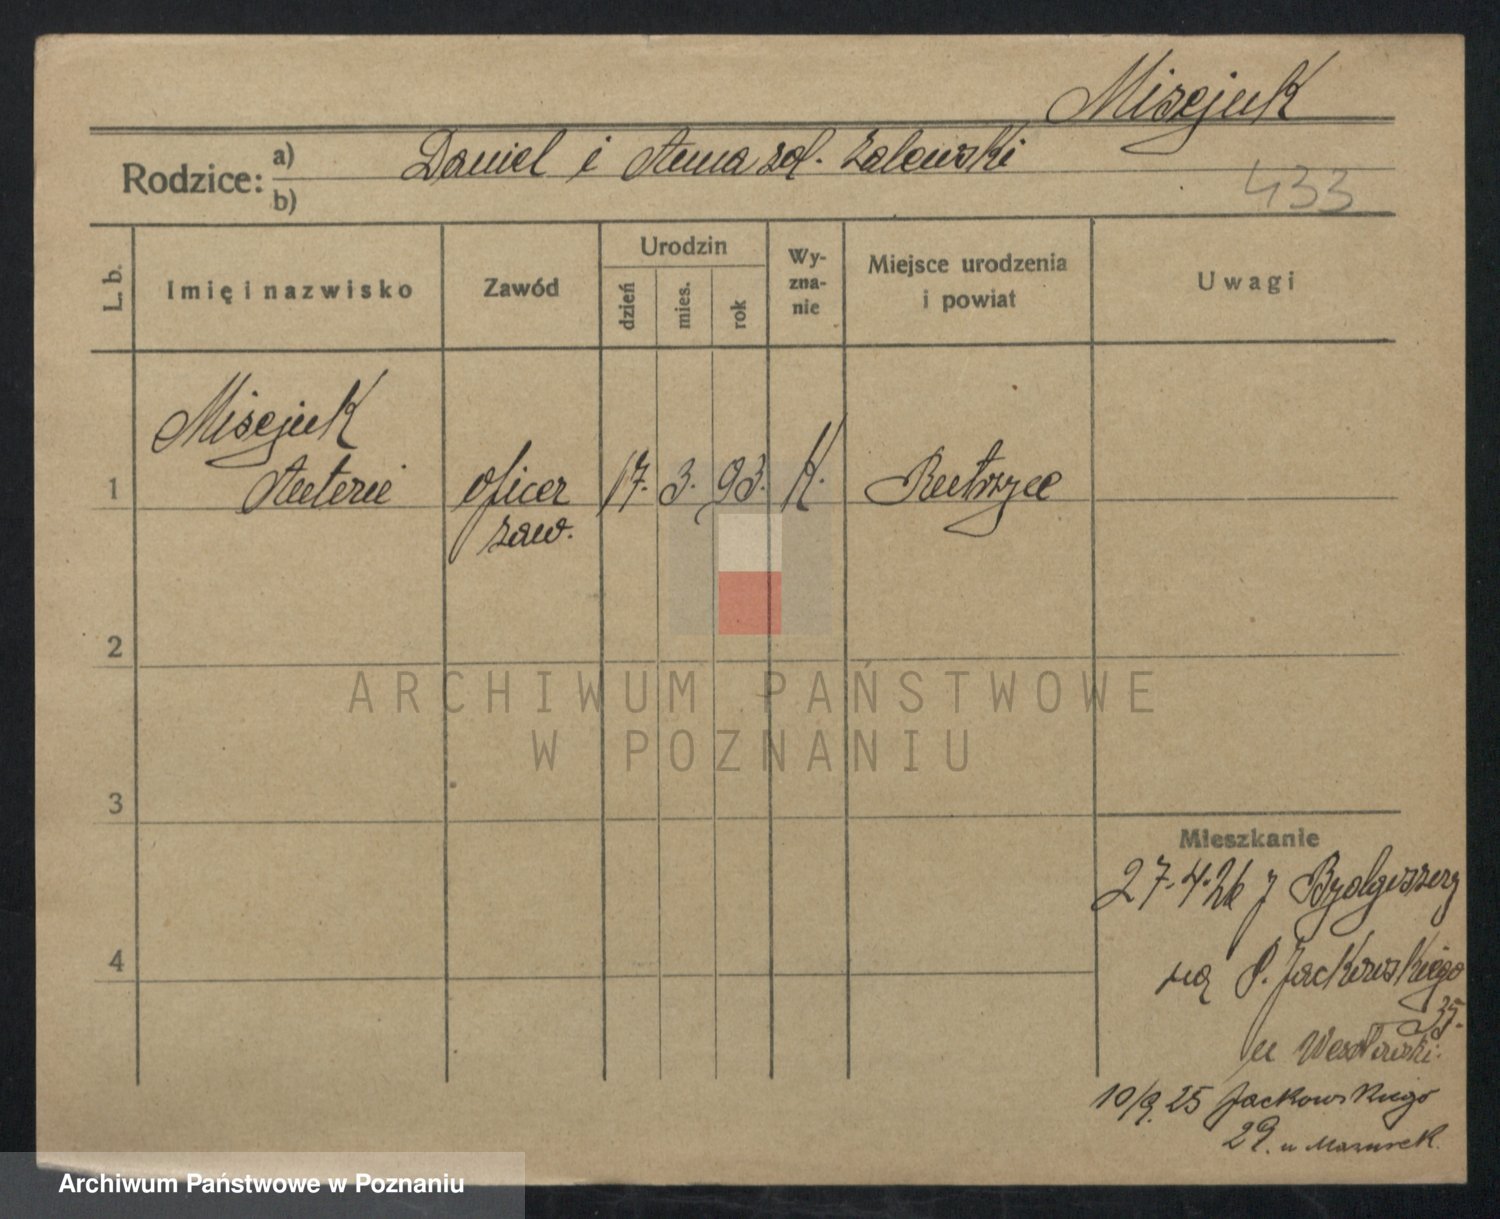 Misejuk
Rodzice: a) Daniel i Anna zd. Zalewski
b)
433
L. b.
Imię i nazwisko
Zawód
Urodzin
dzień
mies.
rok
Wy-
zna-
nie
Miejsce urodzenia
i powiat
Uwagi
Misejuk
1 Antoni oficer 17. 3. 93. K.
zaw.
2
3
4
ARCHIWUM PAŃSTWOWE
W POZNANIU
Mieszkanie
27.4.26 z Bydgoszczy
na P. Jackowskiego
35.
u Wesołowski.
10/9.25 Jackowskiego
29. u Mazurek.
Archiwum Państwowe w Poznaniu